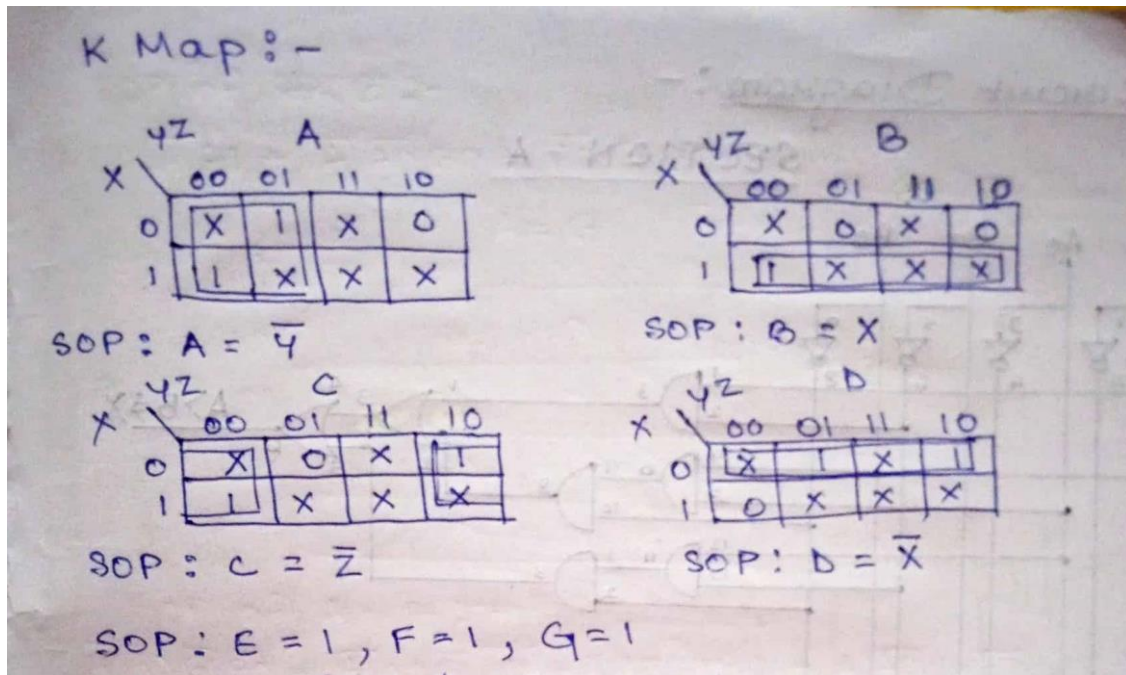 K Map :-
YZ A
X 00 01 11 10
0 X 1 X 0
1 1 X X X
SOP : A = Y̅
YZ B
X 00 01 11 10
0 X 0 X 0
1 1 X X X
SOP : B = X
YZ C
X 00 01 11 10
0 X 0 X 1
1 1 X X X
SOP : C = Z̅
YZ D
X 00 01 11 10
0 X 1 X 1
1 0 X X X
SOP : D = X̅
SOP : E = 1 , F = 1 , G = 1